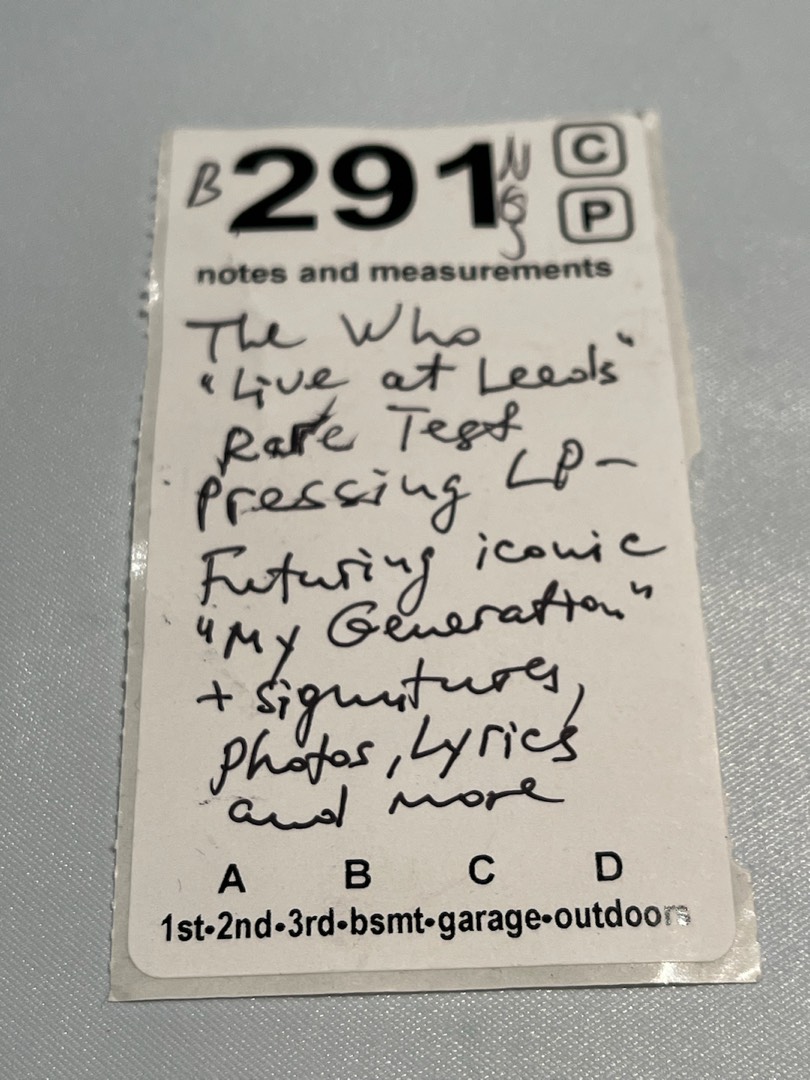 B 291 N C
P
notes and measurements
The Who
"Live at Leeds"
Rare Test
Pressing LP-
Futuring iconic
"My Generation"
+ signutures,
Photos, Lyrics
and more
A B C D
1st•2nd•3rd•bsmt•garage•outdoors